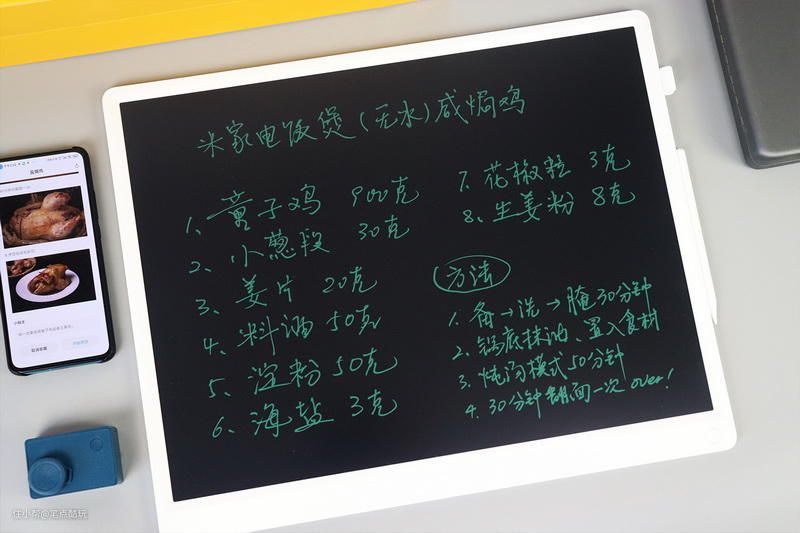 米家电饭煲(无水)咸焗鸡
1、黄子鸡 900克
2、小葱段 30克
3、姜片 20克
4、料酒 50克
5、淀粉 50克
6、海盐 3克
7、花椒粒 3克
8、生姜粉 8克
方法
1、备→洗→腌30分钟
2、锅底抹油、置入食材
3、炖汤模式50分钟
4、30分钟翻面一次 over!
住小帮@笔点酷玩